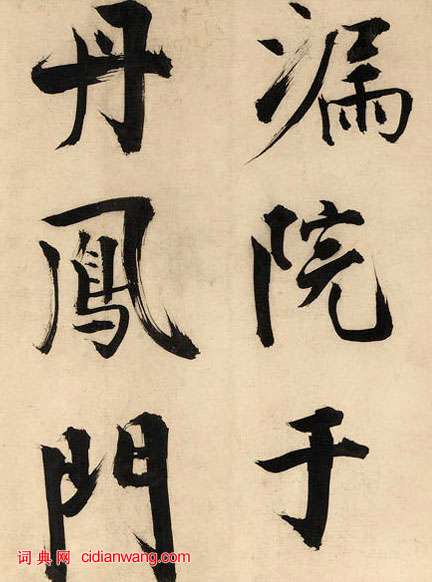 漏院于
丹鳳門
词典网 cidianwang.com